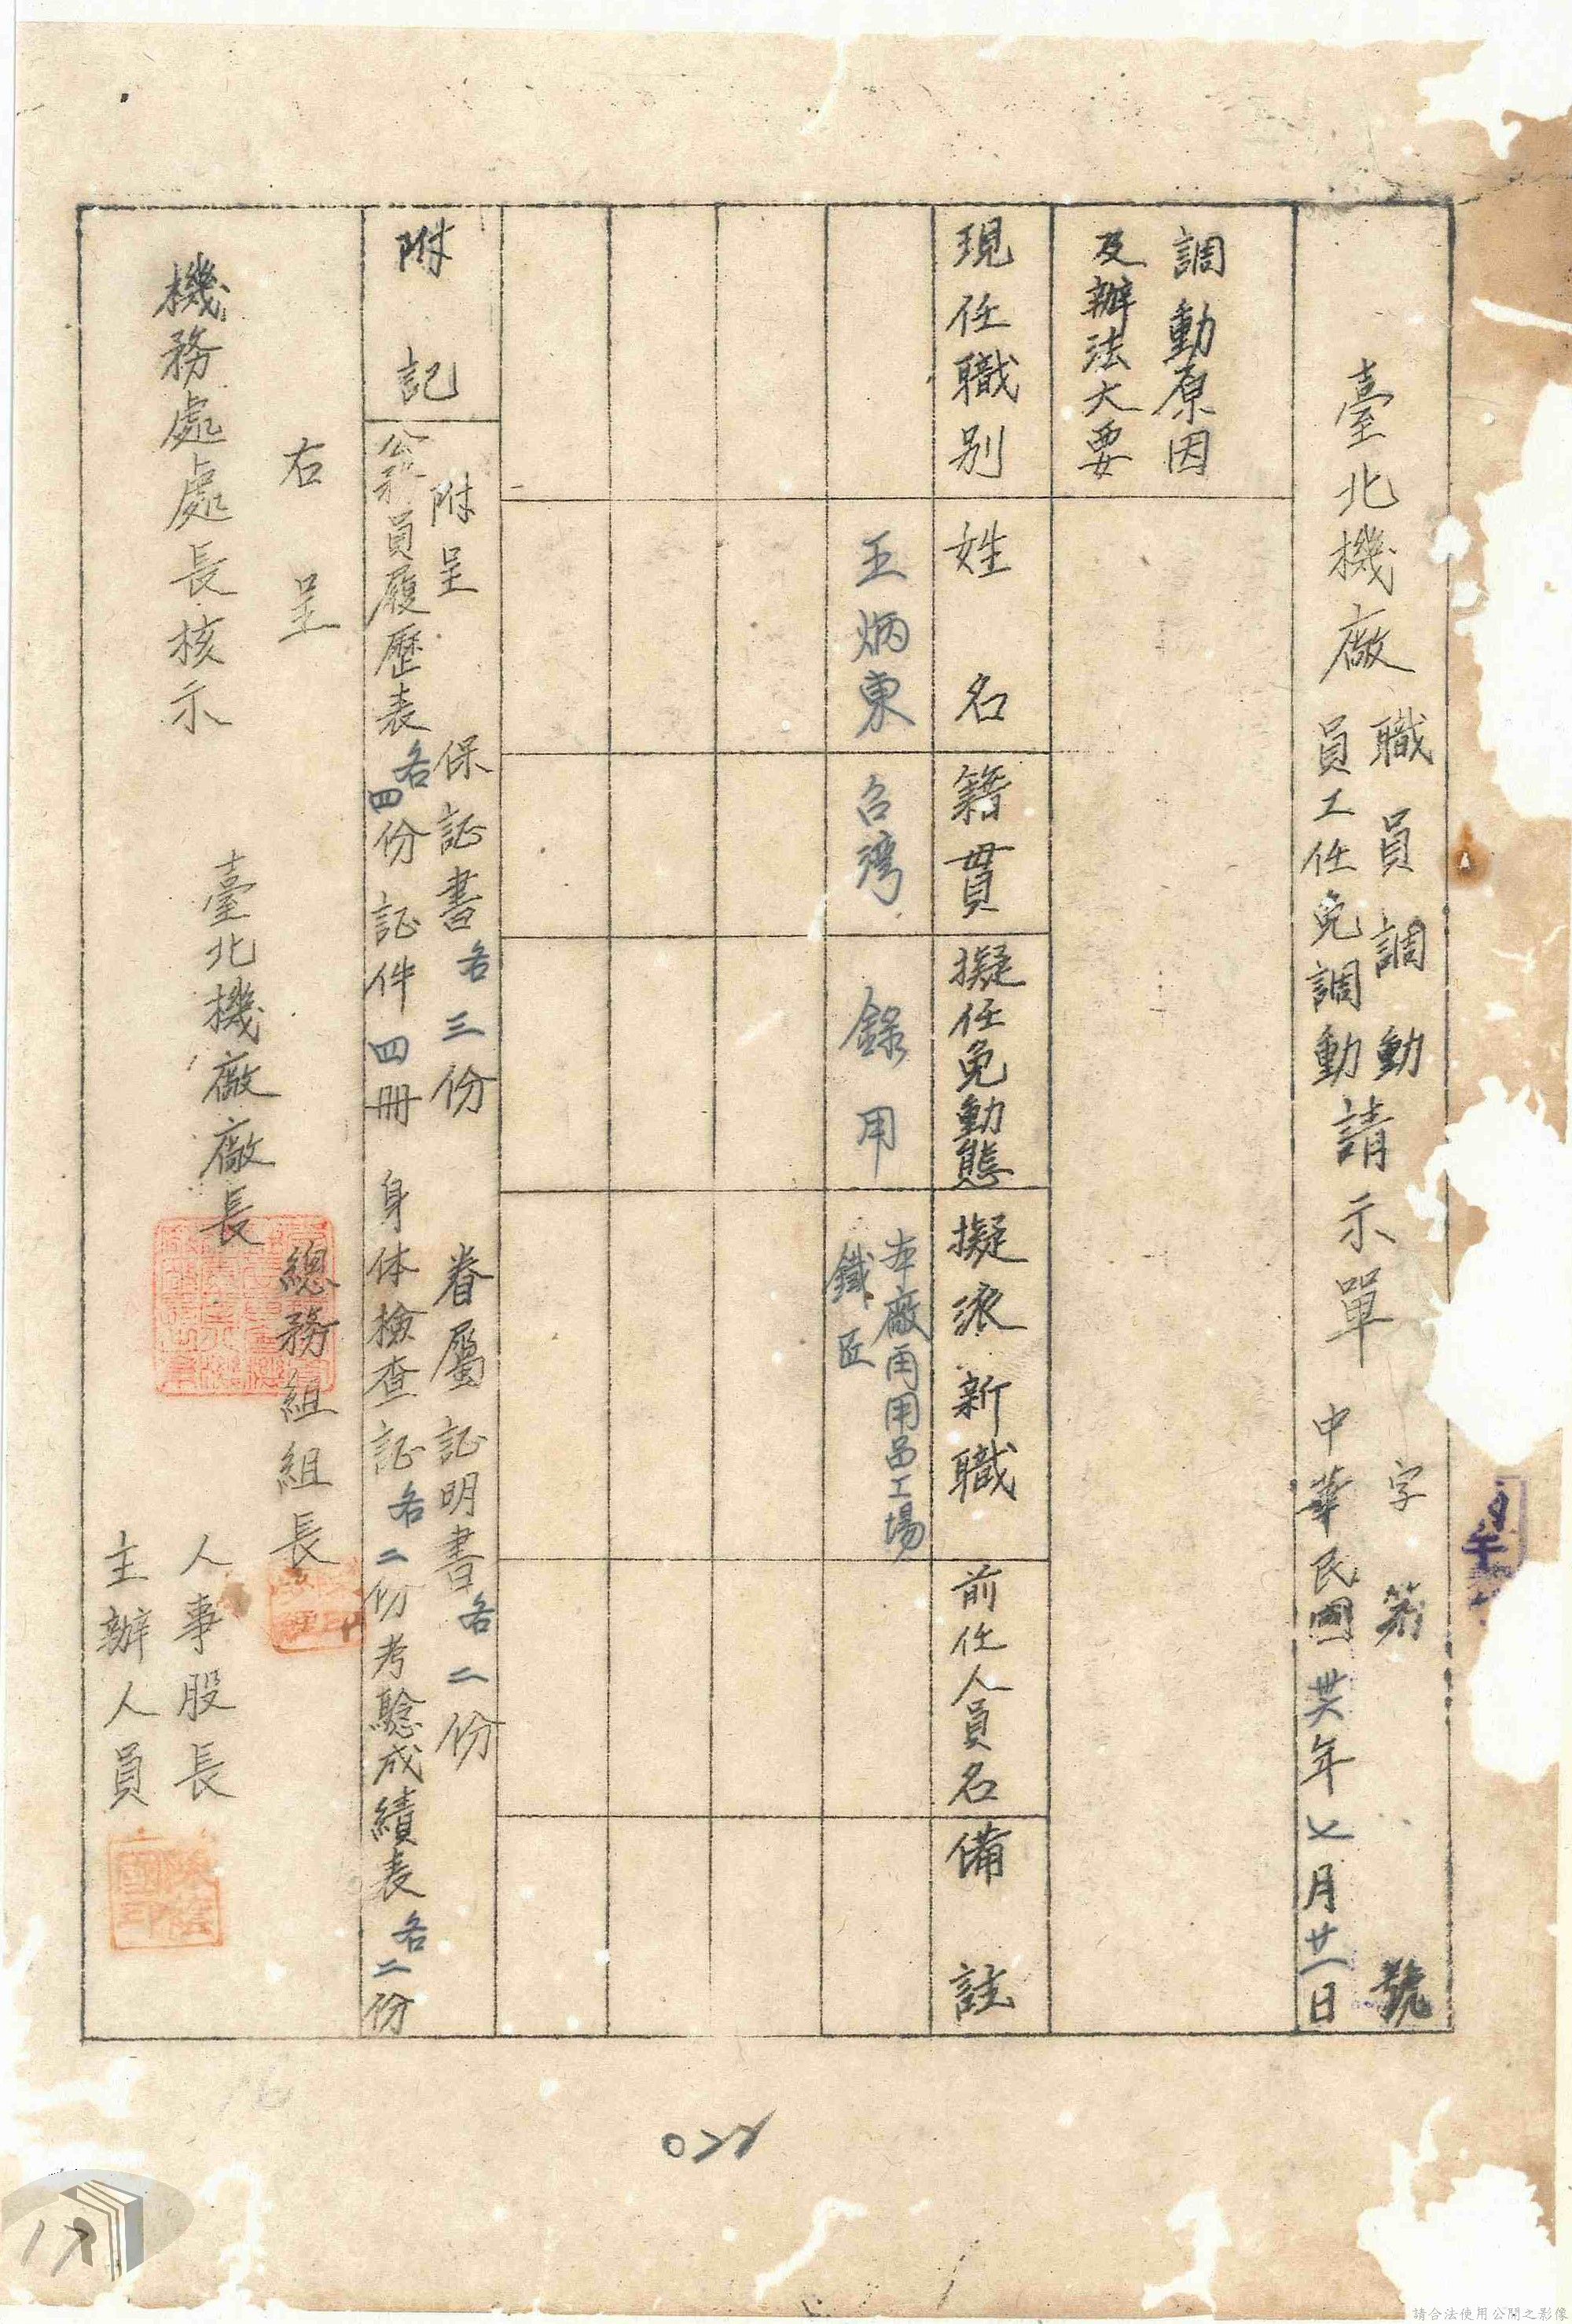 臺北機廠職員調動請示單 字第 號
員工任免調動 中華民國卅六年七月廿一日
調動原因
及辦法大要
現任職別 姓名 籍貫 擬任免動態 擬派新職 前任人員名 備註
王炳東 台灣 錄用 本廠甬用品工場
鐵匠
附記
附呈 保証書各三份 眷屬証明書各二份
員履歷表各四份 証件四冊 身体檢查証各二份 考驗成績表各二份
右呈
機務處處長核示
臺北機廠廠長
總務組組長
人事股長
主辦人員
請合法使用公開之影像